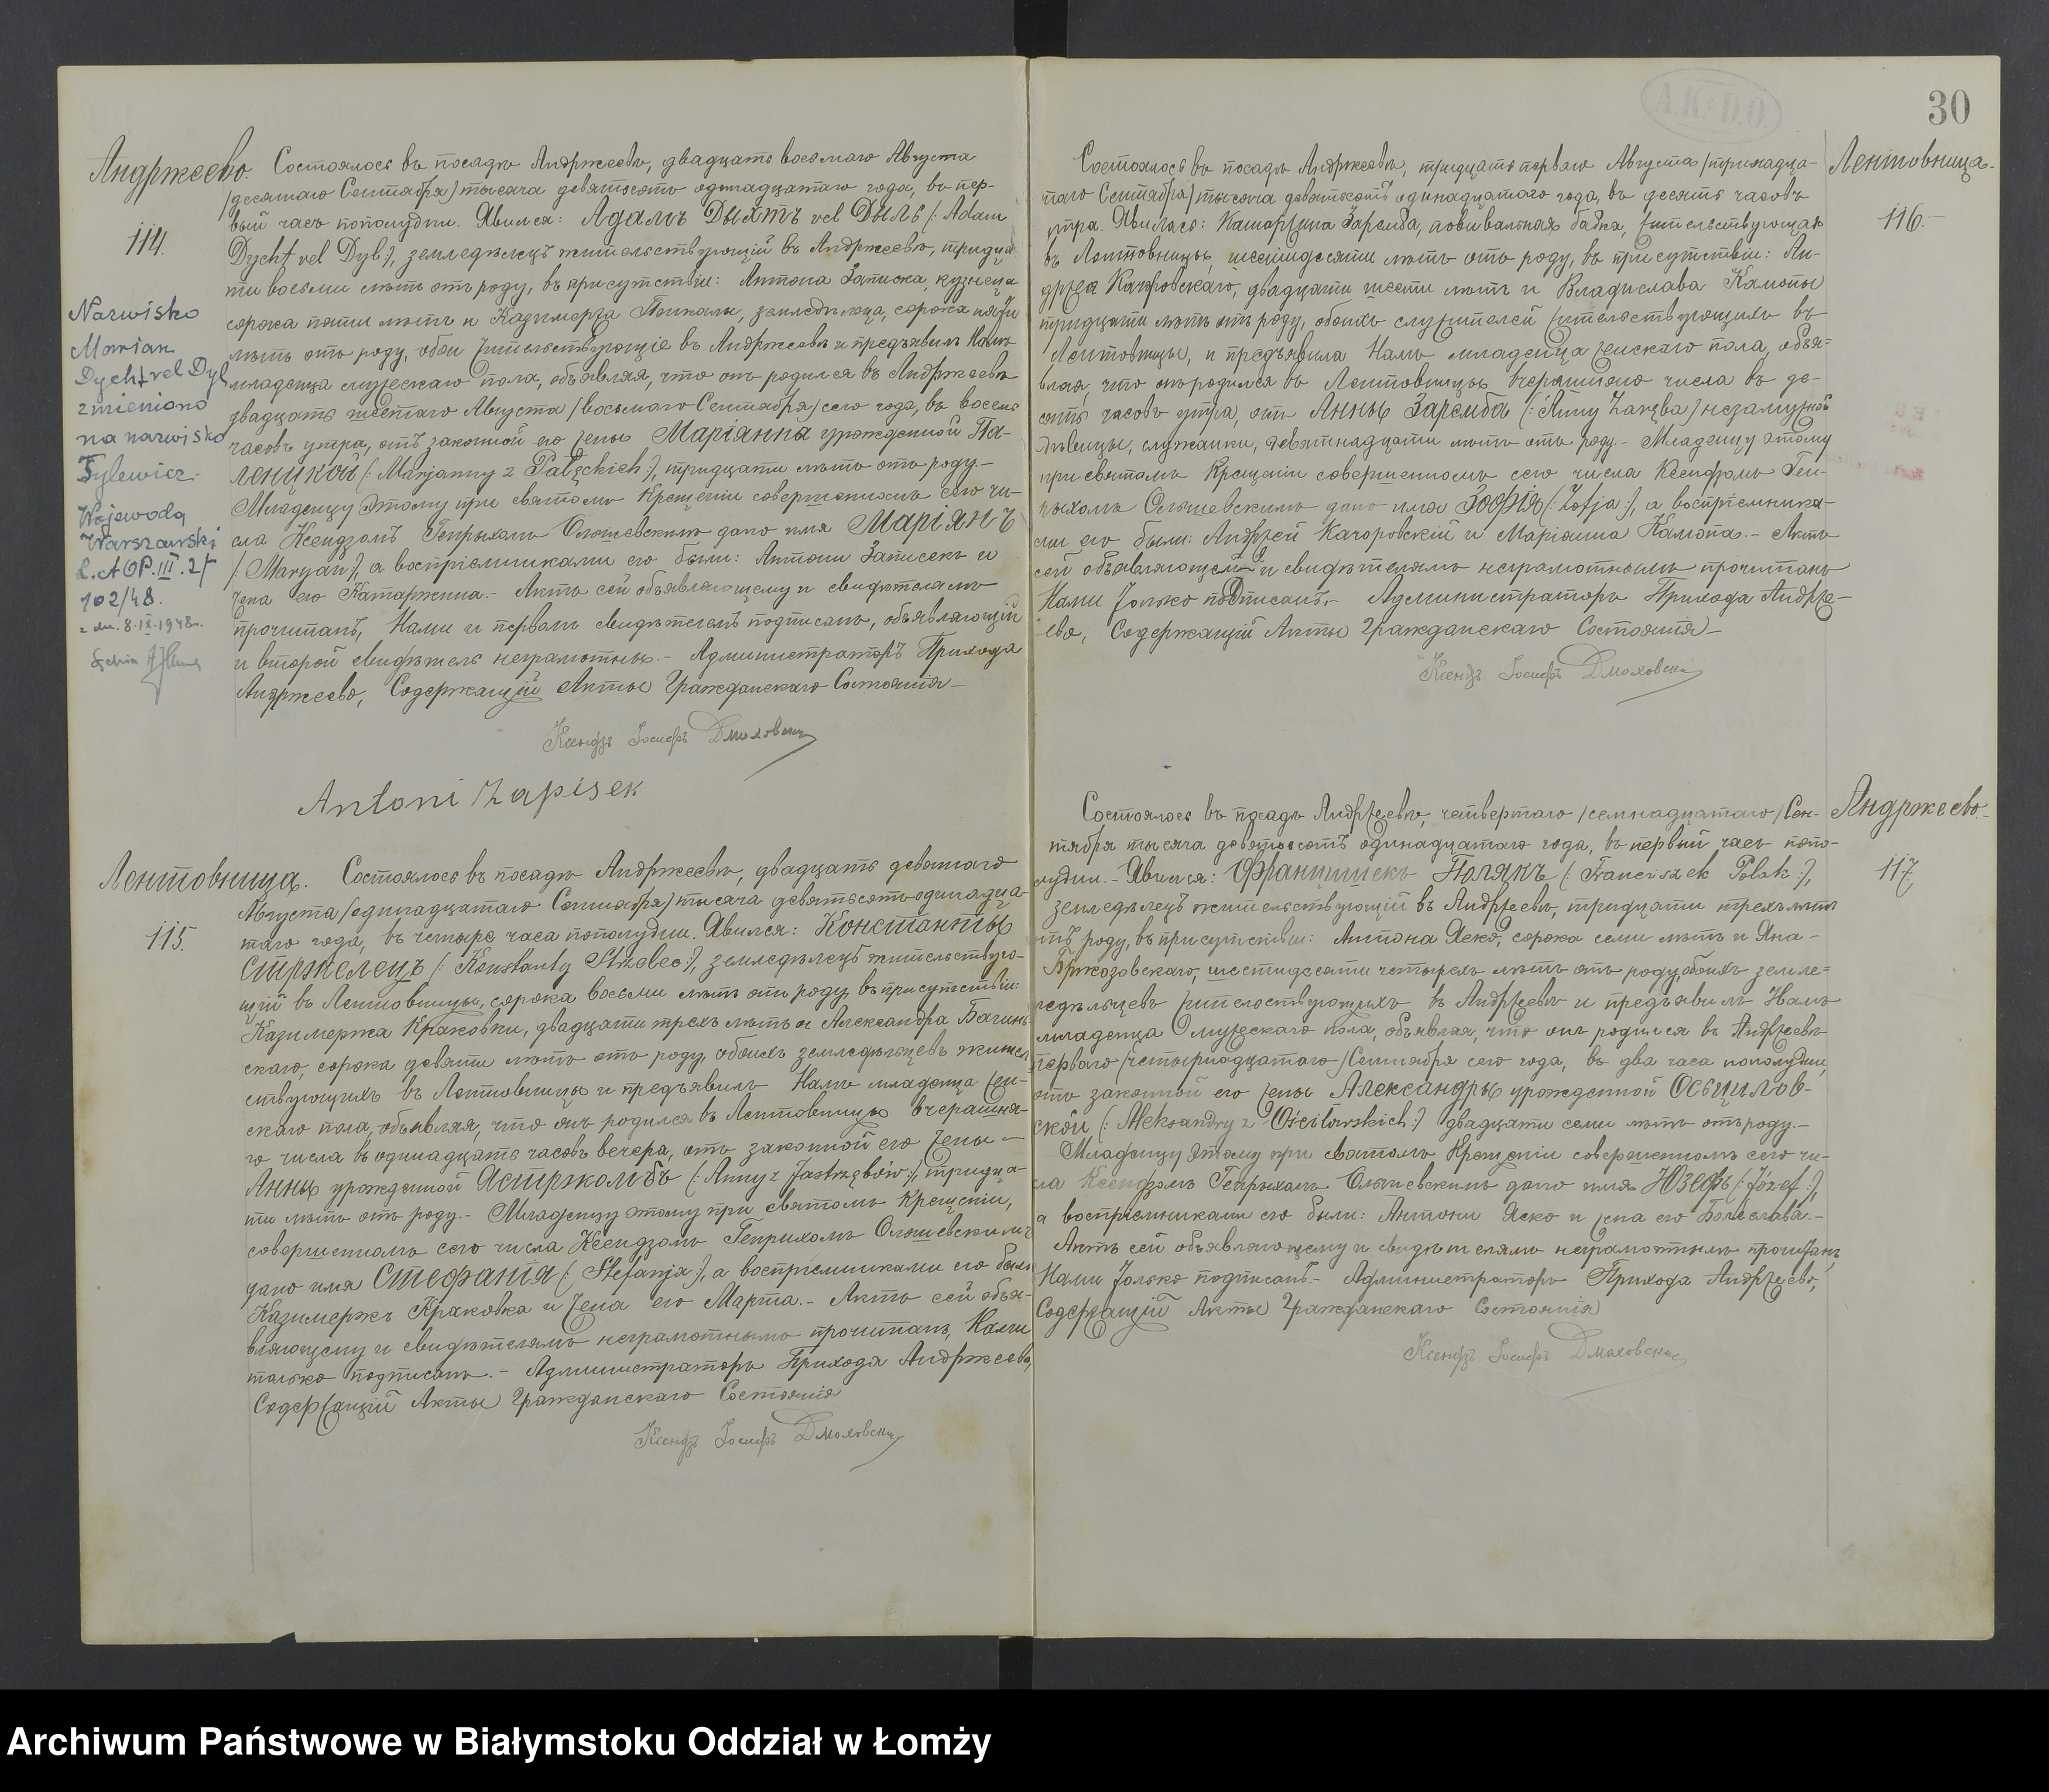 30
Андржеево.
114.
Nazwisko
Marian
Dycht vel Dyl
zmieniono
na nazwisko
Tylewicz
Wojewoda
Warszawski
L.AOP.III.2/
102/48.
z dn. 8.IX.1948r.
Состоялось въ посадѣ Андржеевѣ, двадцать восьмаго Августа
/десятаго Сентября/ тысяча девятьсотъ одинадцатаго года, въ пер-
вый часъ пополудни. Явился: Адамъ Дыхтъ vel Дыль (: Adam
Dycht vel Dyl:), земледѣлецъ жительствующій въ Андржеевѣ, тридца-
ти восьми лѣтъ отъ роду, въ присутствіи: Антона Записка, кузнеца
сорока пяти лѣтъ и Казимержа земледѣльца, сорока пяти
лѣтъ отъ роду, обои жительствующіе въ Андржеевѣ и предъявилъ Намъ
младенца мужескаго пола, объявляя, что онъ родился въ Андржеевѣ
двадцать шестаго Августа /восьмаго Сентября/ сего года, въ восемь
часовъ утра, отъ законной его жены Маріанны урожденной Па-
ленцкой (: Marjanny z Palęckich:), тридцати лѣтъ отъ роду.-
Младенцу этому при святомъ Крещеніи совершенномъ сего чи-
сла Ксендзомъ Генрыхомъ Ольшевскимъ дано имя Маріянъ
(: Maryan:), а воспріемниками его были: Антони Записекъ и
жена его Катаржина.- Актъ сей объявляющему и свидѣтелямъ
прочитанъ, Нами и первымъ свидѣтелемъ подписанъ, объявляющій
и второй свидѣтель неграмотны.- Администраторъ Прихода
Андржеево, Содержащій Акты Гражданскаго Состоянія-
Ксендзъ Іосифъ Дмоховски
Antoni Zapisek
Лентовница.
115.
Состоялось въ посадѣ Андржеевѣ, двадцать девятаго
Августа /одинадцатаго Сентября/ тысяча девятьсотъ одинадца-
таго года, въ четыре часа пополудни. Явился: Константы
Стржелецъ (: Konstanty Strzelec:), земледѣлецъ жительствую-
щій въ Лентовницы, сорока восьми лѣтъ отъ роду, въ присутствіи:
Казимержа Краковки, двадцати трехъ лѣтъ и Александра Багинь-
скаго, сорока девяти лѣтъ отъ роду, обоихъ земледѣльцевъ жител-
ствующихъ въ Лентовницы и предъявилъ Намъ младенца жен-
скаго пола, объявляя, что онъ родился въ Лентовницы вчерашня-
го числа въ одинадцать часовъ вечера, отъ законной его жены -
Анны урожденной Ястржомбъ (: Anny z Jastrzębów:), тридца-
ти лѣтъ отъ роду.- Младенцу этому при святомъ Крещеніи,
совершенномъ сего числа Ксендзомъ Генрихомъ Ольшевскимъ
дано имя Стефанія (: Stefanja:), а воспріемниками его были
Казимержъ Краковка и жена его Марта.- Актъ сей объя-
вляющему и свидѣтелямъ неграмотнымъ прочитанъ, Нами
только подписанъ.- Администраторъ Прихода Андржеево,
Содержащій Акты Гражданскаго Состоянія
Ксендзъ Іосифъ Дмоховски
Лентовница.
116.
Состоялось въ посадѣ Андржеевѣ, тридцать перваго Августа /тринадца-
таго Сентября/ тысяча девятьсотъ одинадцатаго года, въ десять часовъ
утра. Явилась: Катаржина Заремба, повивальная бабка, жительствующая
въ Лентовницы, шестидесяти лѣтъ отъ роду, въ присутствіи: Ан-
држея Качоровскаго, двадцати шести лѣтъ и Владислава Камоны
тридцати лѣтъ отъ роду, обоихъ служителей жительствующихъ въ
Лентовницы, и предъявила Намъ младенца женскаго пола, объя-
вляя, что онъ родился въ Лентовницы вчерашняго числа въ де-
сять часовъ утра, отъ Анны Заремба (: Anny Zaręba) незамужней
дѣвицы, служанки, девятнадцати лѣтъ отъ роду.- Младенцу этому
при святомъ Крещеніи совершенномъ сего числа Ксендзомъ Ген-
рыхомъ Ольшевскимъ дано имя Зофія (: Zofja:), а воспріемника-
ми его были: Андржей Качоровскій и Маріанна Камона.- Актъ
сей объявляющей и свидѣтелямъ неграмотнымъ прочитанъ
Нами только подписанъ.- Администраторъ Прихода Андрже-
ево, Содержащій Акты Гражданскаго Состоянія-
Ксендзъ Іосифъ Дмоховски
Андржеево.
117.
Состоялось въ посадѣ Андржеевѣ, четвертаго /семнадцатаго/ Сен-
тября тысяча девятьсотъ одинадцатаго года, въ первый часъ попо-
лудни.- Явился: Францишекъ Полякъ (: Franciszek Polak:),
земледѣлецъ жительствующій въ Андржеевѣ, тридцати трехъ лѣтъ
отъ роду, въ присутствіи: Антона Яско, сорока семи лѣтъ и Яна-
Бржозовскаго, шестидесяти четырехъ лѣтъ отъ роду, обоихъ земле-
ледѣльцевъ жительствующихъ въ Андржеевѣ и предъявилъ Намъ
младенца мужескаго пола, объявляя, что онъ родился въ Андржеевѣ
перваго /четырнадцатаго/ Сентября сего года, въ два часа пополудни,
отъ законной его жены Александры урожденной Осьцилов-
ской (: Aleksandry z Ościłowskich:) двадцати семи лѣтъ отъ роду.-
Младенцу этому при святомъ Крещеніи совершенномъ сего чи-
сла Ксендзомъ Генрыхомъ Ольшевскимъ дано имя Юзефъ (: Józef:),
а воспріемниками его были: Антони Яско и жена его Болеслава.-
Актъ сей объявляющему и свидѣтелямъ неграмотнымъ прочитанъ,
Нами только подписанъ.- Администраторъ Прихода Андржеево,
Содержащій Акты Гражданскаго Состоянія
Ксендзъ Іосифъ Дмоховски
Archiwum Państwowe w Białymstoku Oddział w Łomży